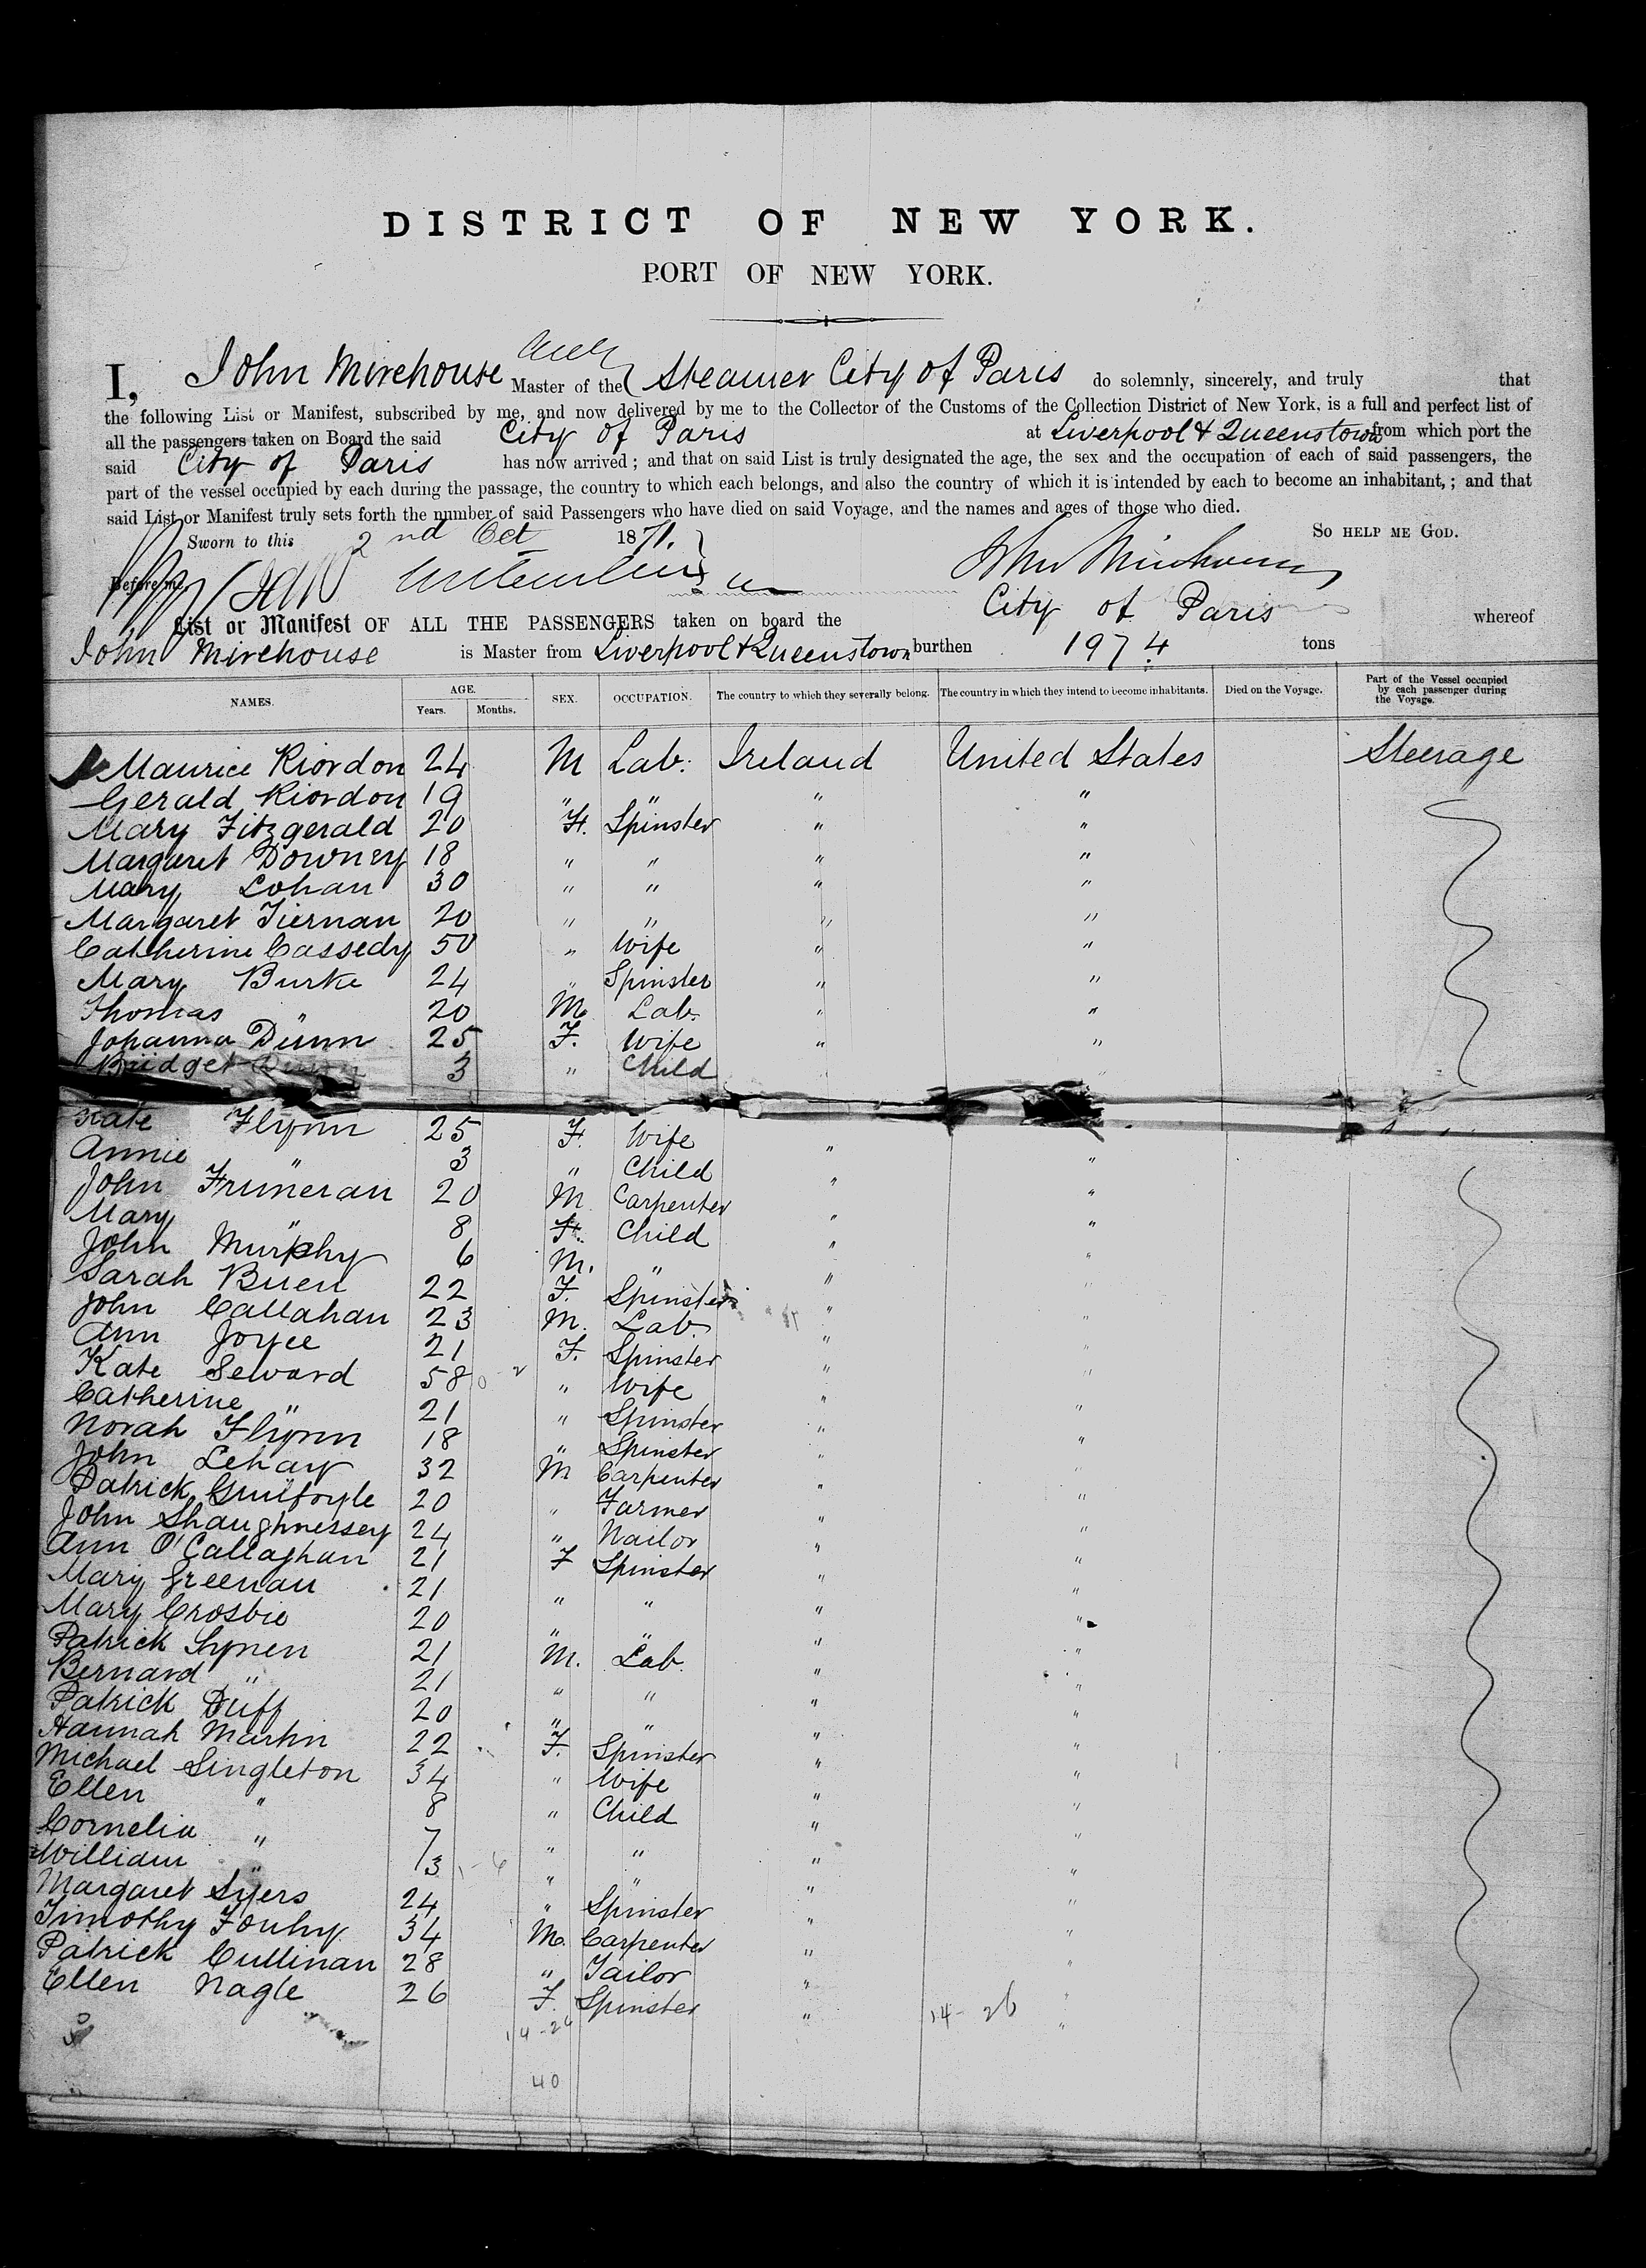 DISTRICT OF NEW YORK.
PORT OF NEW YORK.
I, John Mirehouse Master of the Steamer City of Paris do solemnly, sincerely, and truly that
the following List or Manifest, subscribed by me, and now delivered by me to the Collector of the Customs of the Collection District of New York, is a full and perfect list of
all the passengers taken on Board the said City of Paris at Liverpool & Queenstown from which port the
said City of Paris has now arrived ; and that on said List is truly designated the age, the sex and the occupation of each of said passengers, the
part of the vessel occupied by each during the passage, the country to which each belongs, and also the country of which it is intended by each to become an inhabitant, ; and that
said List or Manifest truly sets forth the number of said Passengers who have died on said Voyage, and the names and ages of those who died.
Sworn to this 2nd Oct 1871. SO HELP ME GOD.
Before me John Mirehouse
List or Manifest OF ALL THE PASSENGERS taken on board the City of Paris whereof
John Mirehouse is Master from Liverpool & Queenstown burthen 1974 tons
NAMES. AGE. Years. Months. SEX. OCCUPATION. The country to which they severally belong. The country in which they intend to become inhabitants. Died on the Voyage. Part of the Vessel occupied by each passenger during the Voyage.
Maurice Riordon 24 M Lab: Ireland United States Steerage
Gerald Riordon 19 " " " "
Mary Fitzgerald 20 F. Spinster " "
Margaret Downey 18 " " " "
Mary Lohan 30 " " " "
Margaret Tiernan 20 " " " "
Catherine Cassedy 50 " Wife " "
Mary Burke 24 " Spinster " "
Thomas " 20 M. Lab. " "
Johanna Dunn 25 F. Wife " "
Bridget Dunn 3 " Child
Kate Flynn 25 F. Wife " "
Annie " 3 " Child " "
John Fruneran 20 M Carpenter " "
Mary " 8 F. Child " "
John Murphy 6 M. " " "
Sarah Buen 22 F. Spinster " "
John Callahan 23 M. Lab. " "
Ann Joyce 21 F. Spinster " "
Kate Seward 58 " Wife " "
Catherine " 21 " Spinster " "
Norah Flynn 18 " Spinster " "
John Lehay 32 M Carpenter " "
Patrick Guilfoyle 20 " Farmer " "
John Shaughnessey 24 " Nailor " "
Ann O'Callaghan 21 F Spinster " "
Mary Greenan 21 " " " "
Mary Crosbie 20 " " " "
Patrick Synen 21 M. Lab. " "
Bernard " 21 " " " "
Patrick Duff 20 " " " "
Hannah Martin 22 F. Spinster " "
Michael Singleton 34 " Wife " "
Ellen " 8 " Child " "
Cornelia " 7 " " " "
William " 3 " " " "
Margaret Syers 24 " Spinster " "
Timothy Fouhy 34 M. Carpenter " "
Patrick Cullinan 28 " Tailor " "
Ellen Nagle 26 F. Spinster " "
14-26 14-26
40